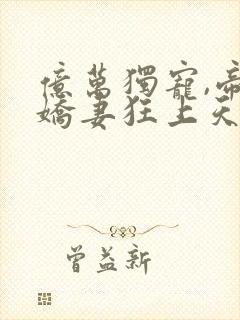 億萬獨寵,帝
嬌妻狂上天
曾益新